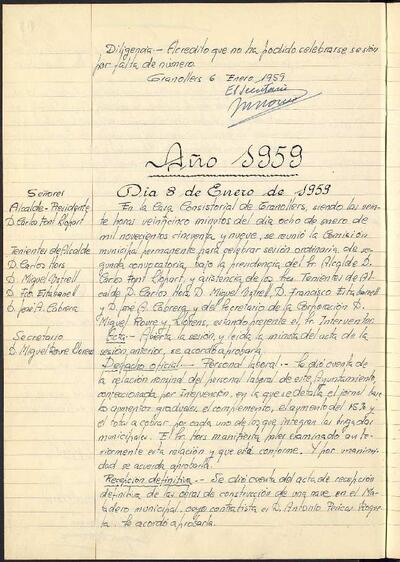 Diligencia.- Acredito que no ha podido celebrarse sesión
por falta de número.
Granollers 6 Enero 1959
El secretario
Año 1959
Día 8 de Enero de 1959
Señores
Alcalde-Presidente
D. Carlos Font Llopart
Tenientes de Alcalde
D. Carlos Hors
D. Miguel Distrell
D. Fco Estabanell
D. José A. Cabrera
Secretario
D. Miguel Roure Llorens
En la Casa Consistorial de Granollers, siendo las vein-
te horas veinticinco minutos del día ocho de enero de
mil novecientos cincuenta y nueve, se reunió la Comisión
municipal permanente para celebrar sesión ordinaria, de se-
gunda convocatoria, bajo la presidencia del Sr. Alcalde D.
Carlos Font Llopart, y asistencia de los tres. Tenientes de Al-
calde D. Carlos Hors, D. Miguel Distrell, D. Francisco Estabanell
y D. José A. Cabrera, y del Secretario de la Corporación D.
Miguel Roure y Llorens, estando presente el Sr. Interventor.
Acta.- Abierta la sesión, y leida la minuta del acta de la
sesión anterior, se acordó aprobarla.
Despacho oficial.- Personal laboral.- Se dió cuenta de
la relación nominal del personal laboral de este Ayuntamiento,
confeccionada por Intervención, en la que se detalla el jornal base
los aumentos graduales, el complemento, el aumento del 15% y
el total a cobrar por cada uno de los que integran las brigadas
municipales. El Sr. Hors manifiesta haber examinado ante-
riormente esta relación y que está conforme. Y por unanimi-
dad se acuerda aprobarla.
Recepción definitiva.- Se dió cuenta del acta de recepción
definitiva de las obras de construcción de una nave en el Ma-
tadero municipal, cuyo contratista es D. Antonio Pericas
Se acordó aprobarla.